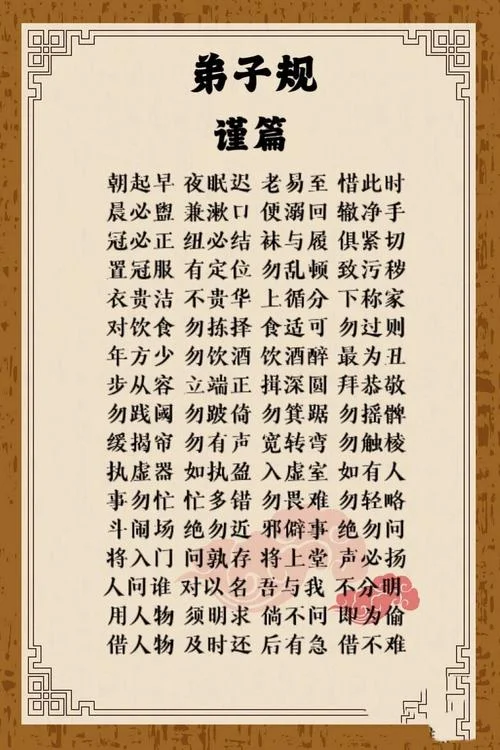 弟子规
谨篇
朝起早 夜眠迟 老易至 惜此时
晨必盥 兼漱口 便溺回 辙净手
冠必正 纽必结 袜与履 俱紧切
置冠服 有定位 勿乱顿 致污秽
衣贵洁 不贵华 上循分 下称家
对饮食 勿拣择 食适可 勿过则
年方少 勿饮酒 饮酒醉 最为丑
步从容 立端正 揖深圆 拜恭敬
勿践阈 勿跛倚 勿箕踞 勿摇髀
缓揭帘 勿有声 宽转弯 勿触棱
执虚器 如执盈 入虚室 如有人
事勿忙 忙多错 勿畏难 勿轻略
斗闹场 绝勿近 邪僻事 绝勿问
将入门 问孰存 将上堂 声必扬
人问谁 对以名 吾与我 不分明
用人物 须明求 倘不问 即为偷
借人物 及时还 后有急 借不难